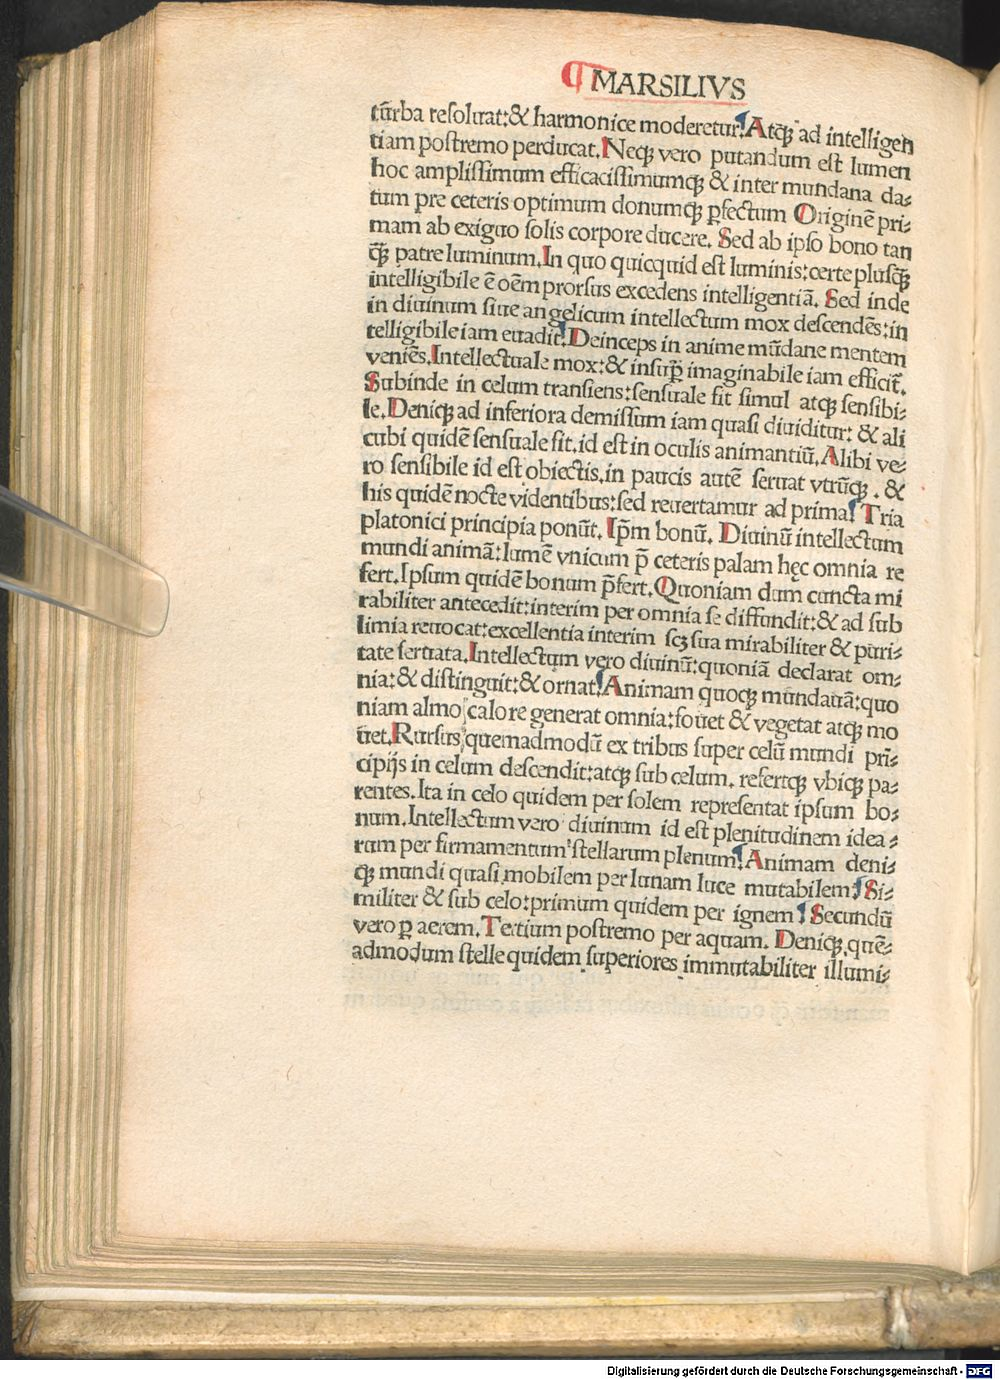 ¶ MARSILIVS
tūrba resoluat:& harmonice moderetur.¶Atq̨ ad intelligen
tiam postremo perducat.Neq̨ vero putandum est lumen
hoc amplissimum efficacissimumq̨ & inter mundana da⸗
tum pre ceteris optimum donumq̨ ꝑfectum Originē pri⸗
mam ab exiguo solis corpore ducere. Sed ab ipso bono tan
q̨̄ patre luminum.In quo quicquid est luminis:certe plusq̨̄
intelligibile ē oēm prorsus excedens intelligentiā. Sed inde
in diuinum siue angelicum intellectum mox descendēs:in
telligibile iam euadit.¶Deinceps in anime mūdane mentem
veniēs.Intellectuale mox:& insuꝑ imaginabile iam efficit̄.
Subinde in celum transiens:sensuale fit simul atq̨ sensibi⸗
le.Deniq̨ ad inferiora demissum iam quasi diuiditur: & ali
cubi quidē sensuale fit.id est in oculis animantiū.Alibi ve⸗
ro sensibile id est obiectis.in paucis autē seruat vtrūq̨ . &
his quidē nocte videntibus:sed reuertamur ad prima.¶Tria
platonici principia ponūt. Ip̄m bonū. Diuinū intellectum
mundi animā:lumē vnicum p̄ ceteris palam hęc omnia re
fert.Ipsum quidē bonum p̄fert.Quoniam dum cuncta mi
rabiliter antecedit:interim per omnia se diffundit:& ad sub
limia reuocat:excellentia interim scꝫ sua mirabiliter & puri⸗
tate seruata.Intellectum vero diuinū:quoniā declarat om⸗
nia:& distinguit:& ornat.¶Animam quoq̨ mundanā:quo
niam almo calore generat omnia:fouet & vegetat atq̨ mo
uet.Rursus quemadmodū ex tribus super celū mundi prī⸗
cipijs in celum descendit:atq̨ sub celum. refertq̨ vbiq̨ pa⸗
rentes.Ita in celo quidem per solem representat ipsum bo⸗
num.Intellectum vero diuinum id est plenitudinem idea⸗
rum per firmamentum stellarum plenum.¶Animam deni⸗
q̨ mundi quasi mobilem per lunam luce mutabilem.¶Si⸗
militer & sub celo:primum quidem per ignem ¶Secundū
vero ꝑ aerem. Tertium postremo per aquam. Deniq̨ quē⸗
admodum stelle quidem superiores immutabiliter illumi⸗
Digitalisierung gefördert durch die Deutsche Forschungsgemeinschaft - DFG